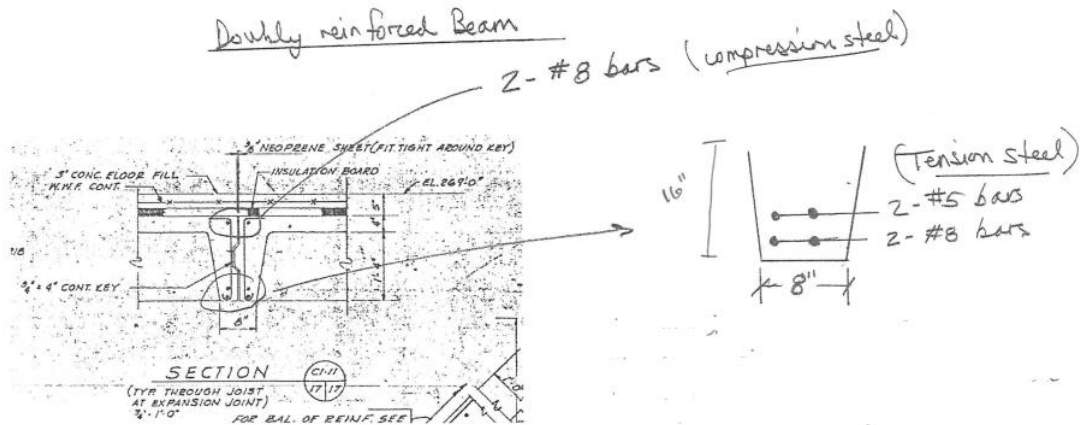 Doubly reinforced Beam
2- #8 bars (compression steel)
⅜" NEOPRENE SHEET (FIT TIGHT AROUND KEY)
3" CONC. FLOOR FILL
W.W.F. CONT.
INSULATION BOARD
EL. 269'-0"
¾" x 4" CONT. KEY
8"
SECTION
C1-11
17 17
(TYP. THROUGH JOIST
AT EXPANSION JOINT)
¾" = 1'-0"
FOR BAL. OF REINF. SEE
16"
(Tension Steel)
2- #5 bars
2- #8 bars
8"